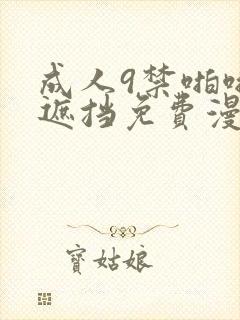 成人9禁啪啪
遮挡免费漫
寳姑娘